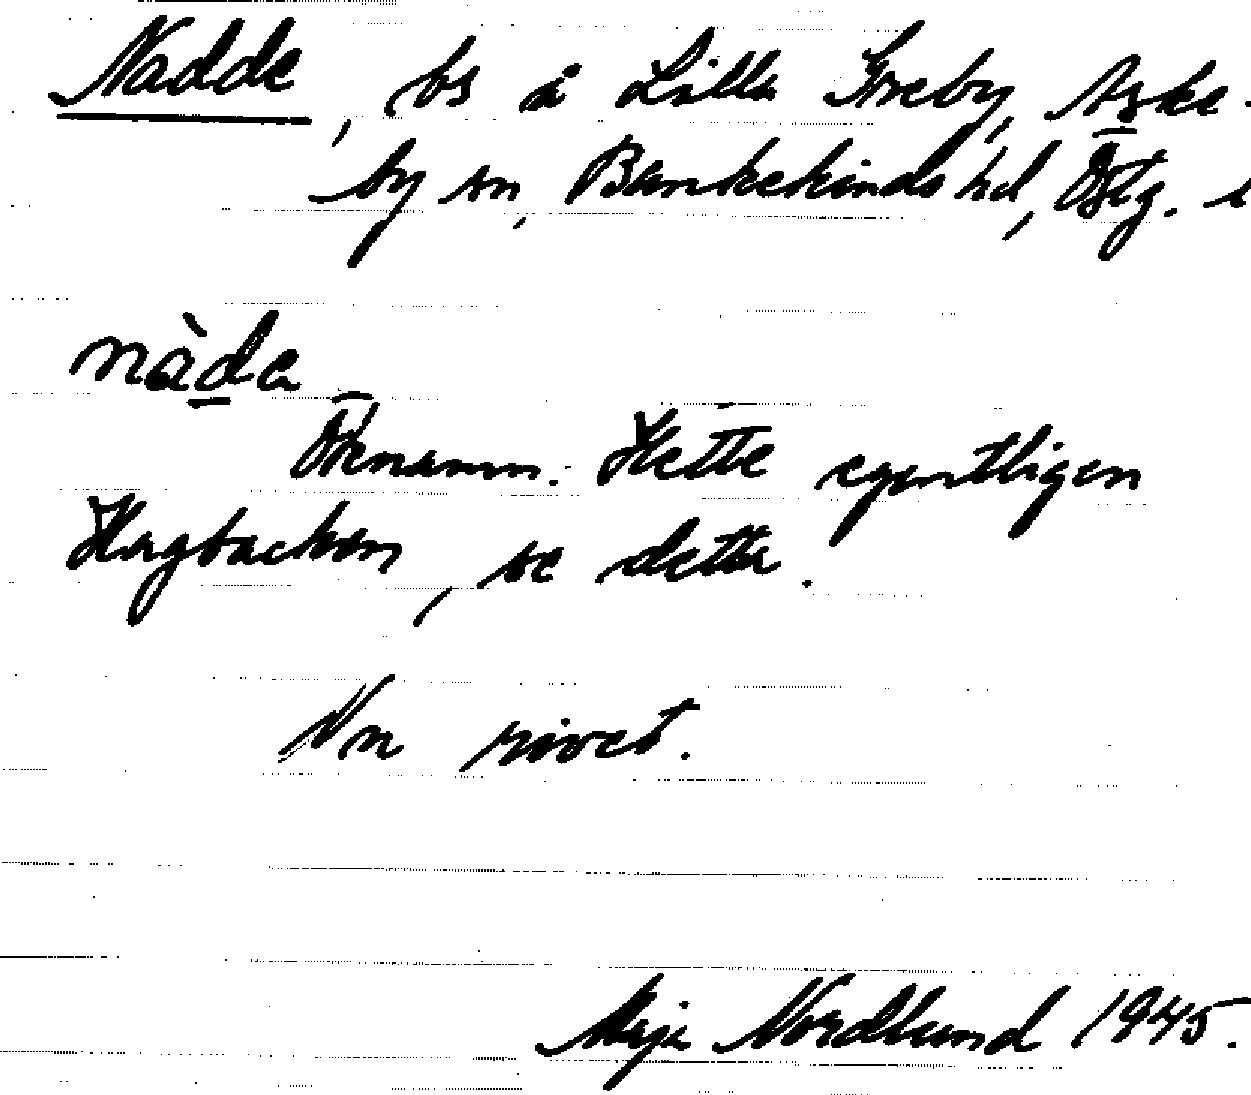 Nadde, bs å Lilla Greby, Aske-
by sn, Bankekinds hd, Östg. l
nàda
Öknamn. Hette egentligen
Hagbacken, se detta.
Nu rivet.
Maja Nordlund 1945.